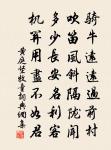 騎牛遠遠過前村
吹笛風斜隔隴聞
多少長安名利客
机算用盡不如君
黄庭堅牧童詞典網集